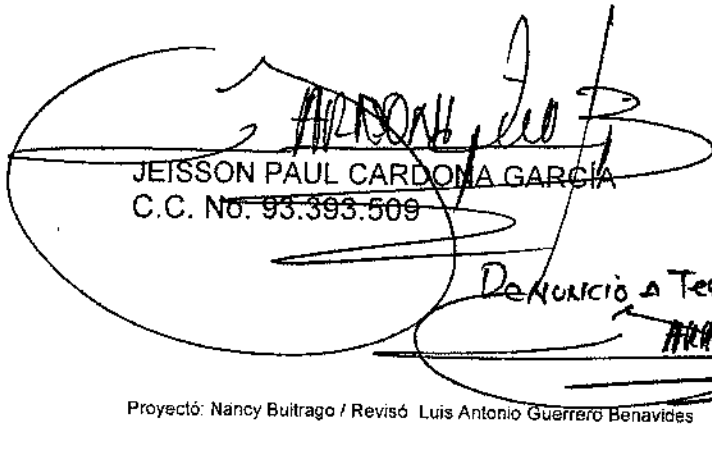 JEISSON PAUL CARDONA GARCÍA
C.C. No. 93.393.509
Denuncio a
Proyectó: Nancy Buitrago / Revisó Luis Antonio Guerrero Benavides